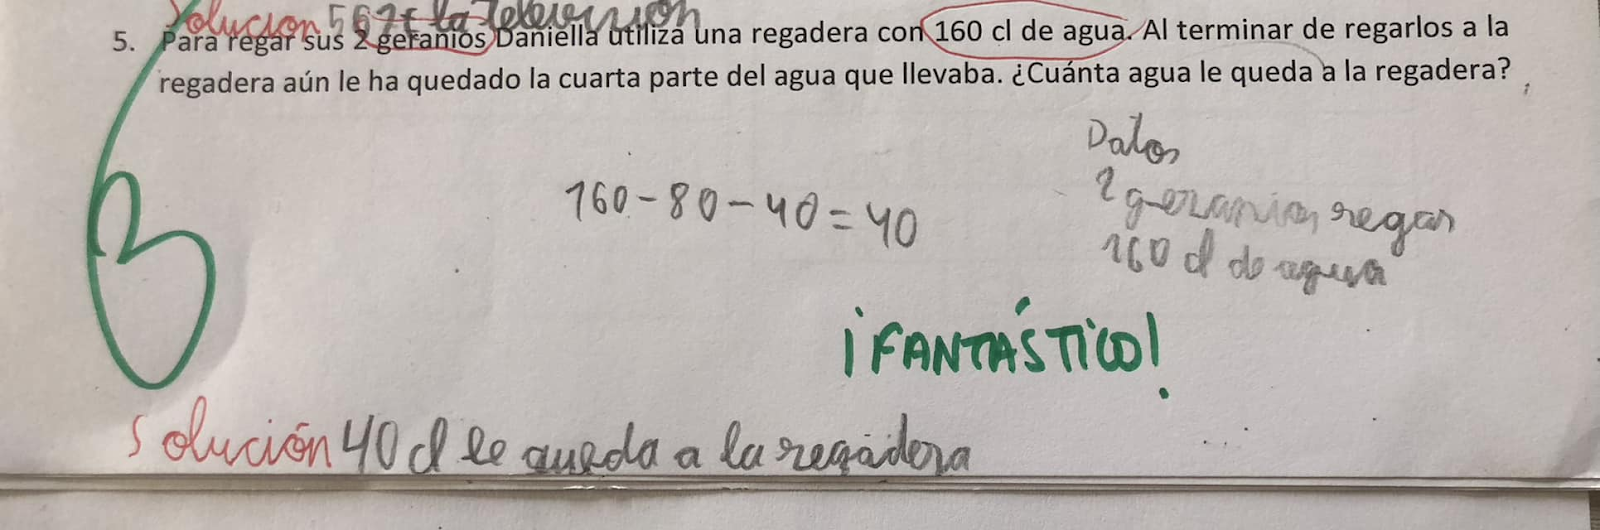 Solución 567€ la televisión
5. Para regar sus 2 geranios Daniella utiliza una regadera con 160 cl de agua. Al terminar de regarlos a la
regadera aún le ha quedado la cuarta parte del agua que llevaba. ¿Cuánta agua le queda a la regadera?
Datos
2 geranios regar
160 cl de agua
160-80-40=40
¡FANTÁSTICO!
Solución 40 cl le queda a la regadera